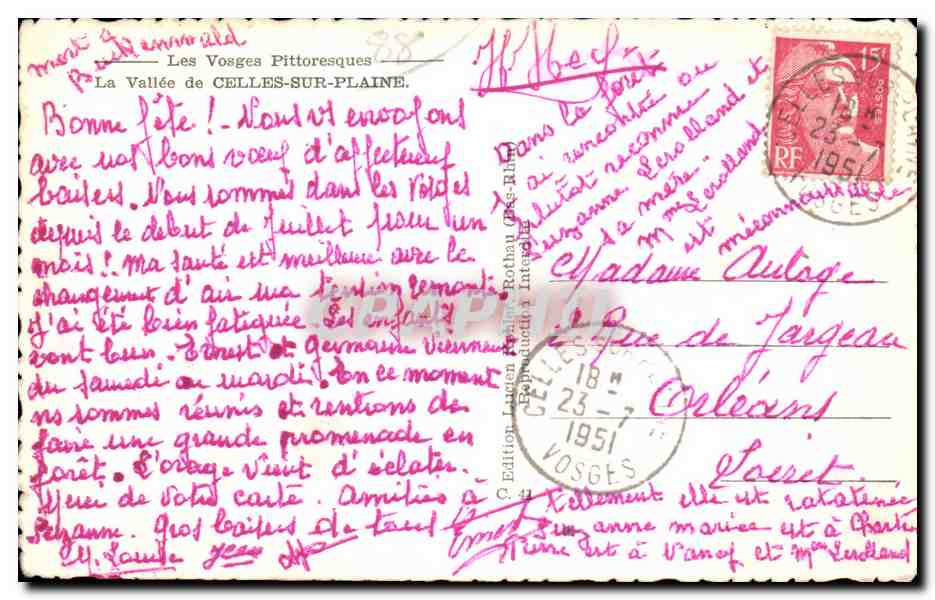 Les Vosges Pittoresques
La Vallée de CELLES-SUR-PLAINE.
88
Bonne fête ! - Nous vs envoyons
avec nos bons vœux d'affectueux
baisers. Nous sommes dans les Vosges
depuis le début de Juillet pour un
mois ! Ma santé est meilleure avec le
changement d'air ma tension remonte.
J'ai été bien fatiguée. Les enfants
vont bien. Ernest et Germaine viennent
du samedi au mardi. En ce moment
ns sommes réunis et rentrons de
faire une grande promenade en
forêt. L'orage vient d'éclater.
Merci de votre carte. Amitiés à
Suzanne. Gros baisers de tous
Dans la forêt
j'ai rencontré au
reconnu
Suzanne Lerolland et
sa mère.
Mme Lerolland
est méconnaissable
tellement elle est ratatinée
Suzanne mariée est à
Pierre est à Nancy et Mme Lerolland
C. 41 Edition Lucien Rothau (Bas-Rhin)
Reproduction Interdite
15f
RF
CELLES-SUR-PLAINE
18 H
23 - 7
1951
VOSGES
Madame
Rue de Jargeau
Orléans
Loiret
CELLES-SUR-PLAINE
18 H
23 - 7
1951
VOSGES